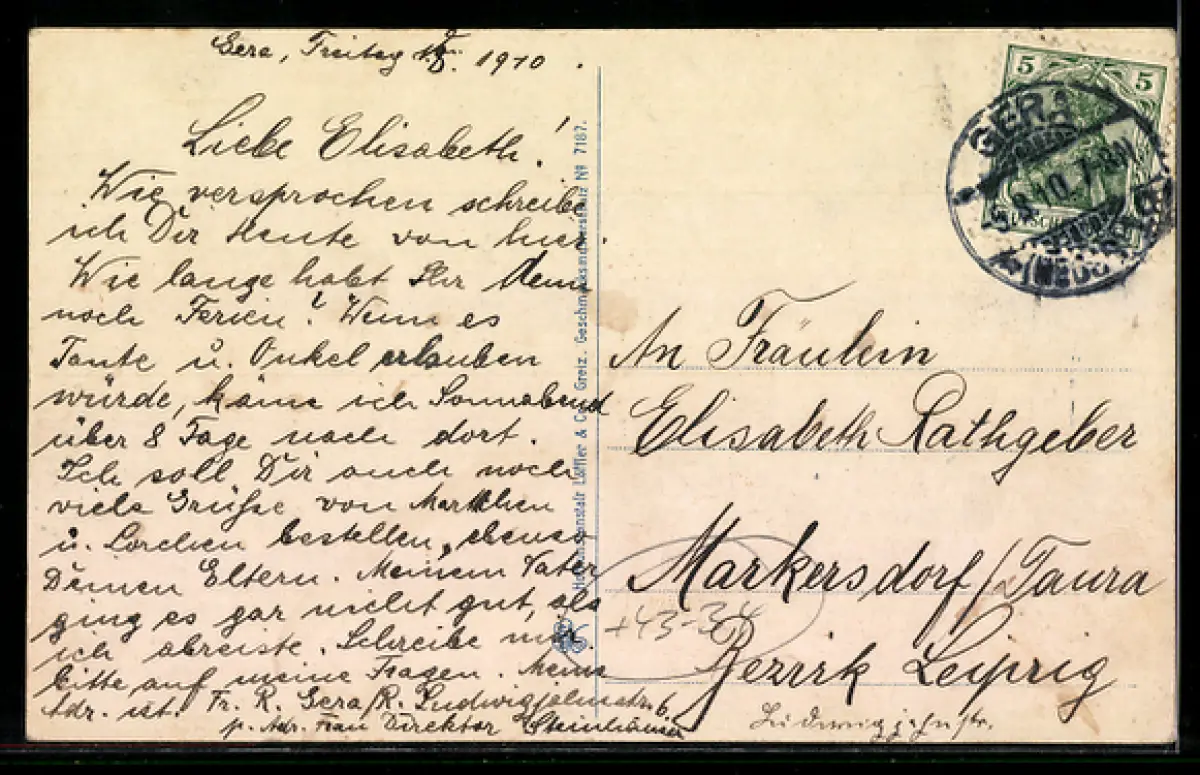 Gera, Freitag 1910.
Liebe Elisabeth!
Wie versprochen schreibe
ich Dir heute von hier.
Wie lange habt Ihr denn
noch Ferien? Wenn es
Tante u. Onkel erlauben
würde, käme ich Sonnabend
über 8 Tage nach dort.
Ich soll Dir auch noch
viele Grüße von
u. Lorchen bestellen, ebenso
Deinen Eltern. Meinem Vater
ging es gar nicht gut, als
ich abreiste. Schreibe mir
bitte auf meine Fragen. Meine
Adr. ist: Fr. R. Gera/R. Ludwigjahnstr. 6
p. Adr. Frau Direktor Steinhäuser
Löffler & Co., Greiz. Geschmacksmusterschutz No 7187.
5 5
GERA
8.10. 7-8N
(REUSS)
An Fräulein
Elisabeth Rathgeber
Markersdorf/Taura
+43-34
Bezirk Leipzig
Ludwigjahnstr.